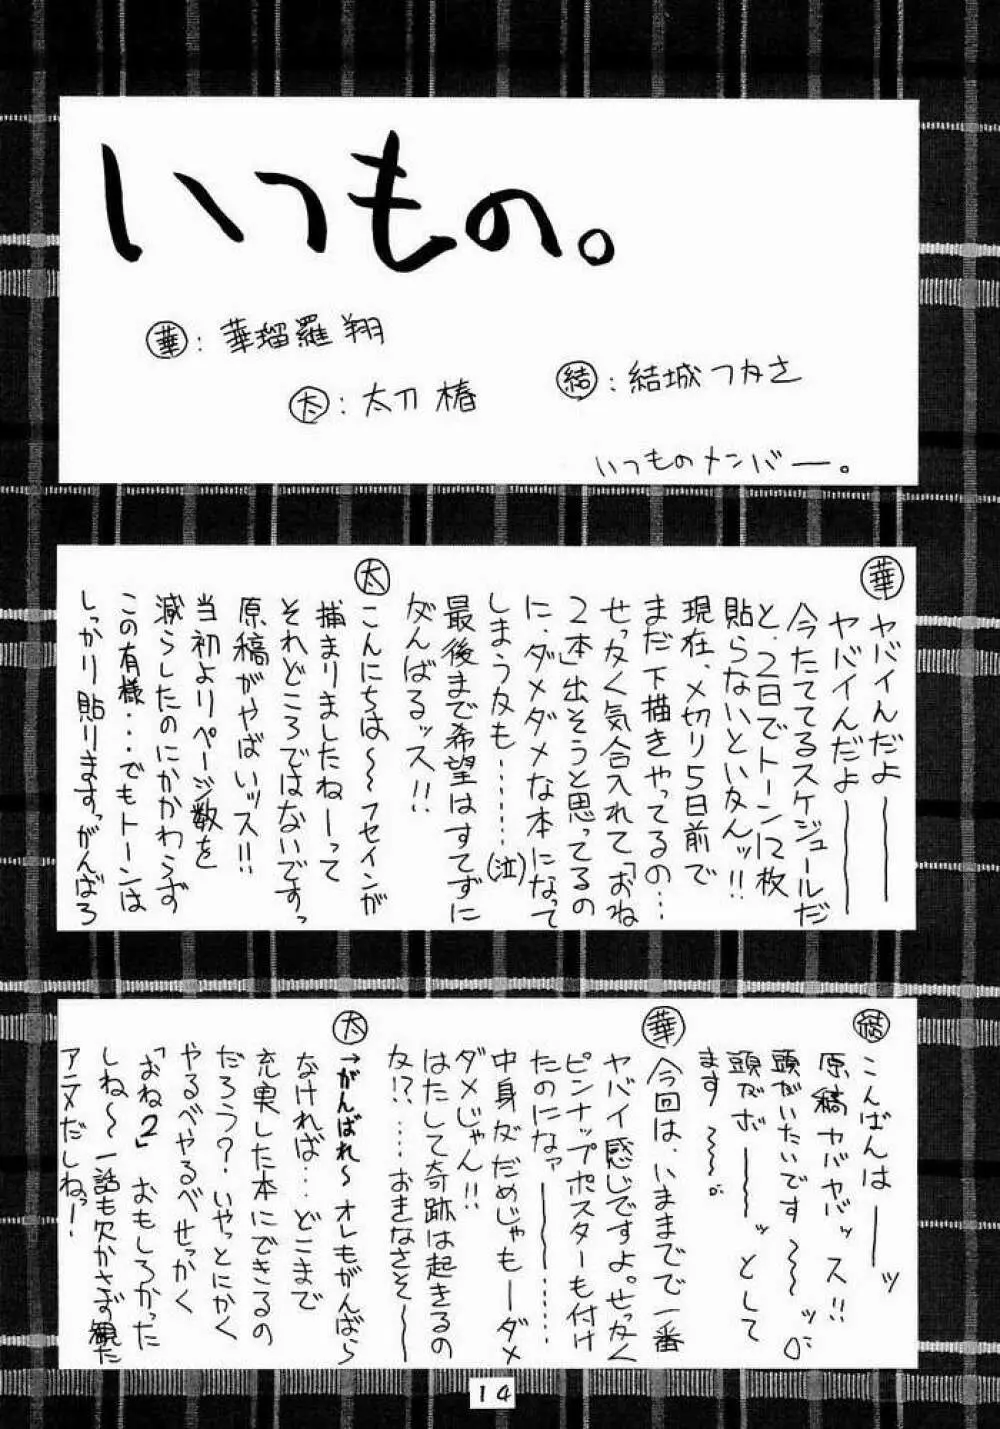 いつもの。
華：華瑠羅翔
太：太刀椿
結：結城つなさ
いつものメンバー。
華 ヤバイんだよ――
ヤバイんだよ――
今たててるスケジュールだ
と、2日でトーン12枚
貼らないといかんッ!!
現在、〆切り5日前で
まだ下描きやってるの…
せっかく気合入れて「おね
2本」出そうと思ってるの
に、ダメダメな本になって
しまうかも………(泣)
最後まで希望はすてずに
がんばるッス!!
太 こんにちは〜〜フセインが
捕まりましたねーって
それどころではないですっ
原稿がやばいッス!!
当初よりページ数を
減らしたのにかかわらず
この有様・・・でもトーンは
しっかり貼りますっがんばろ
結 こんばんは――ッ
原稿ヤバヤバッス!!
頭がいたいです〜〜ッ。
頭がボ――ッとして
ます〜〜。
華 今回は、いままでで一番
ヤバイ感じですよ。せっかく
ピンナップポスターも付け
たのになァ――………
中身がだめじゃもーダメ
ダメじゃん!!
はたして奇跡は起きるの
か!?……おきなさそ〜〜
太 →がんばれ〜オレもがんばら
なければ…どこまで
充実した本にできるの
だろう？いやっとにかく
やるべやるべせっかく
「おね2」おもしろかった
しね〜一話も欠かさず観た
アニメだしねっ！
14